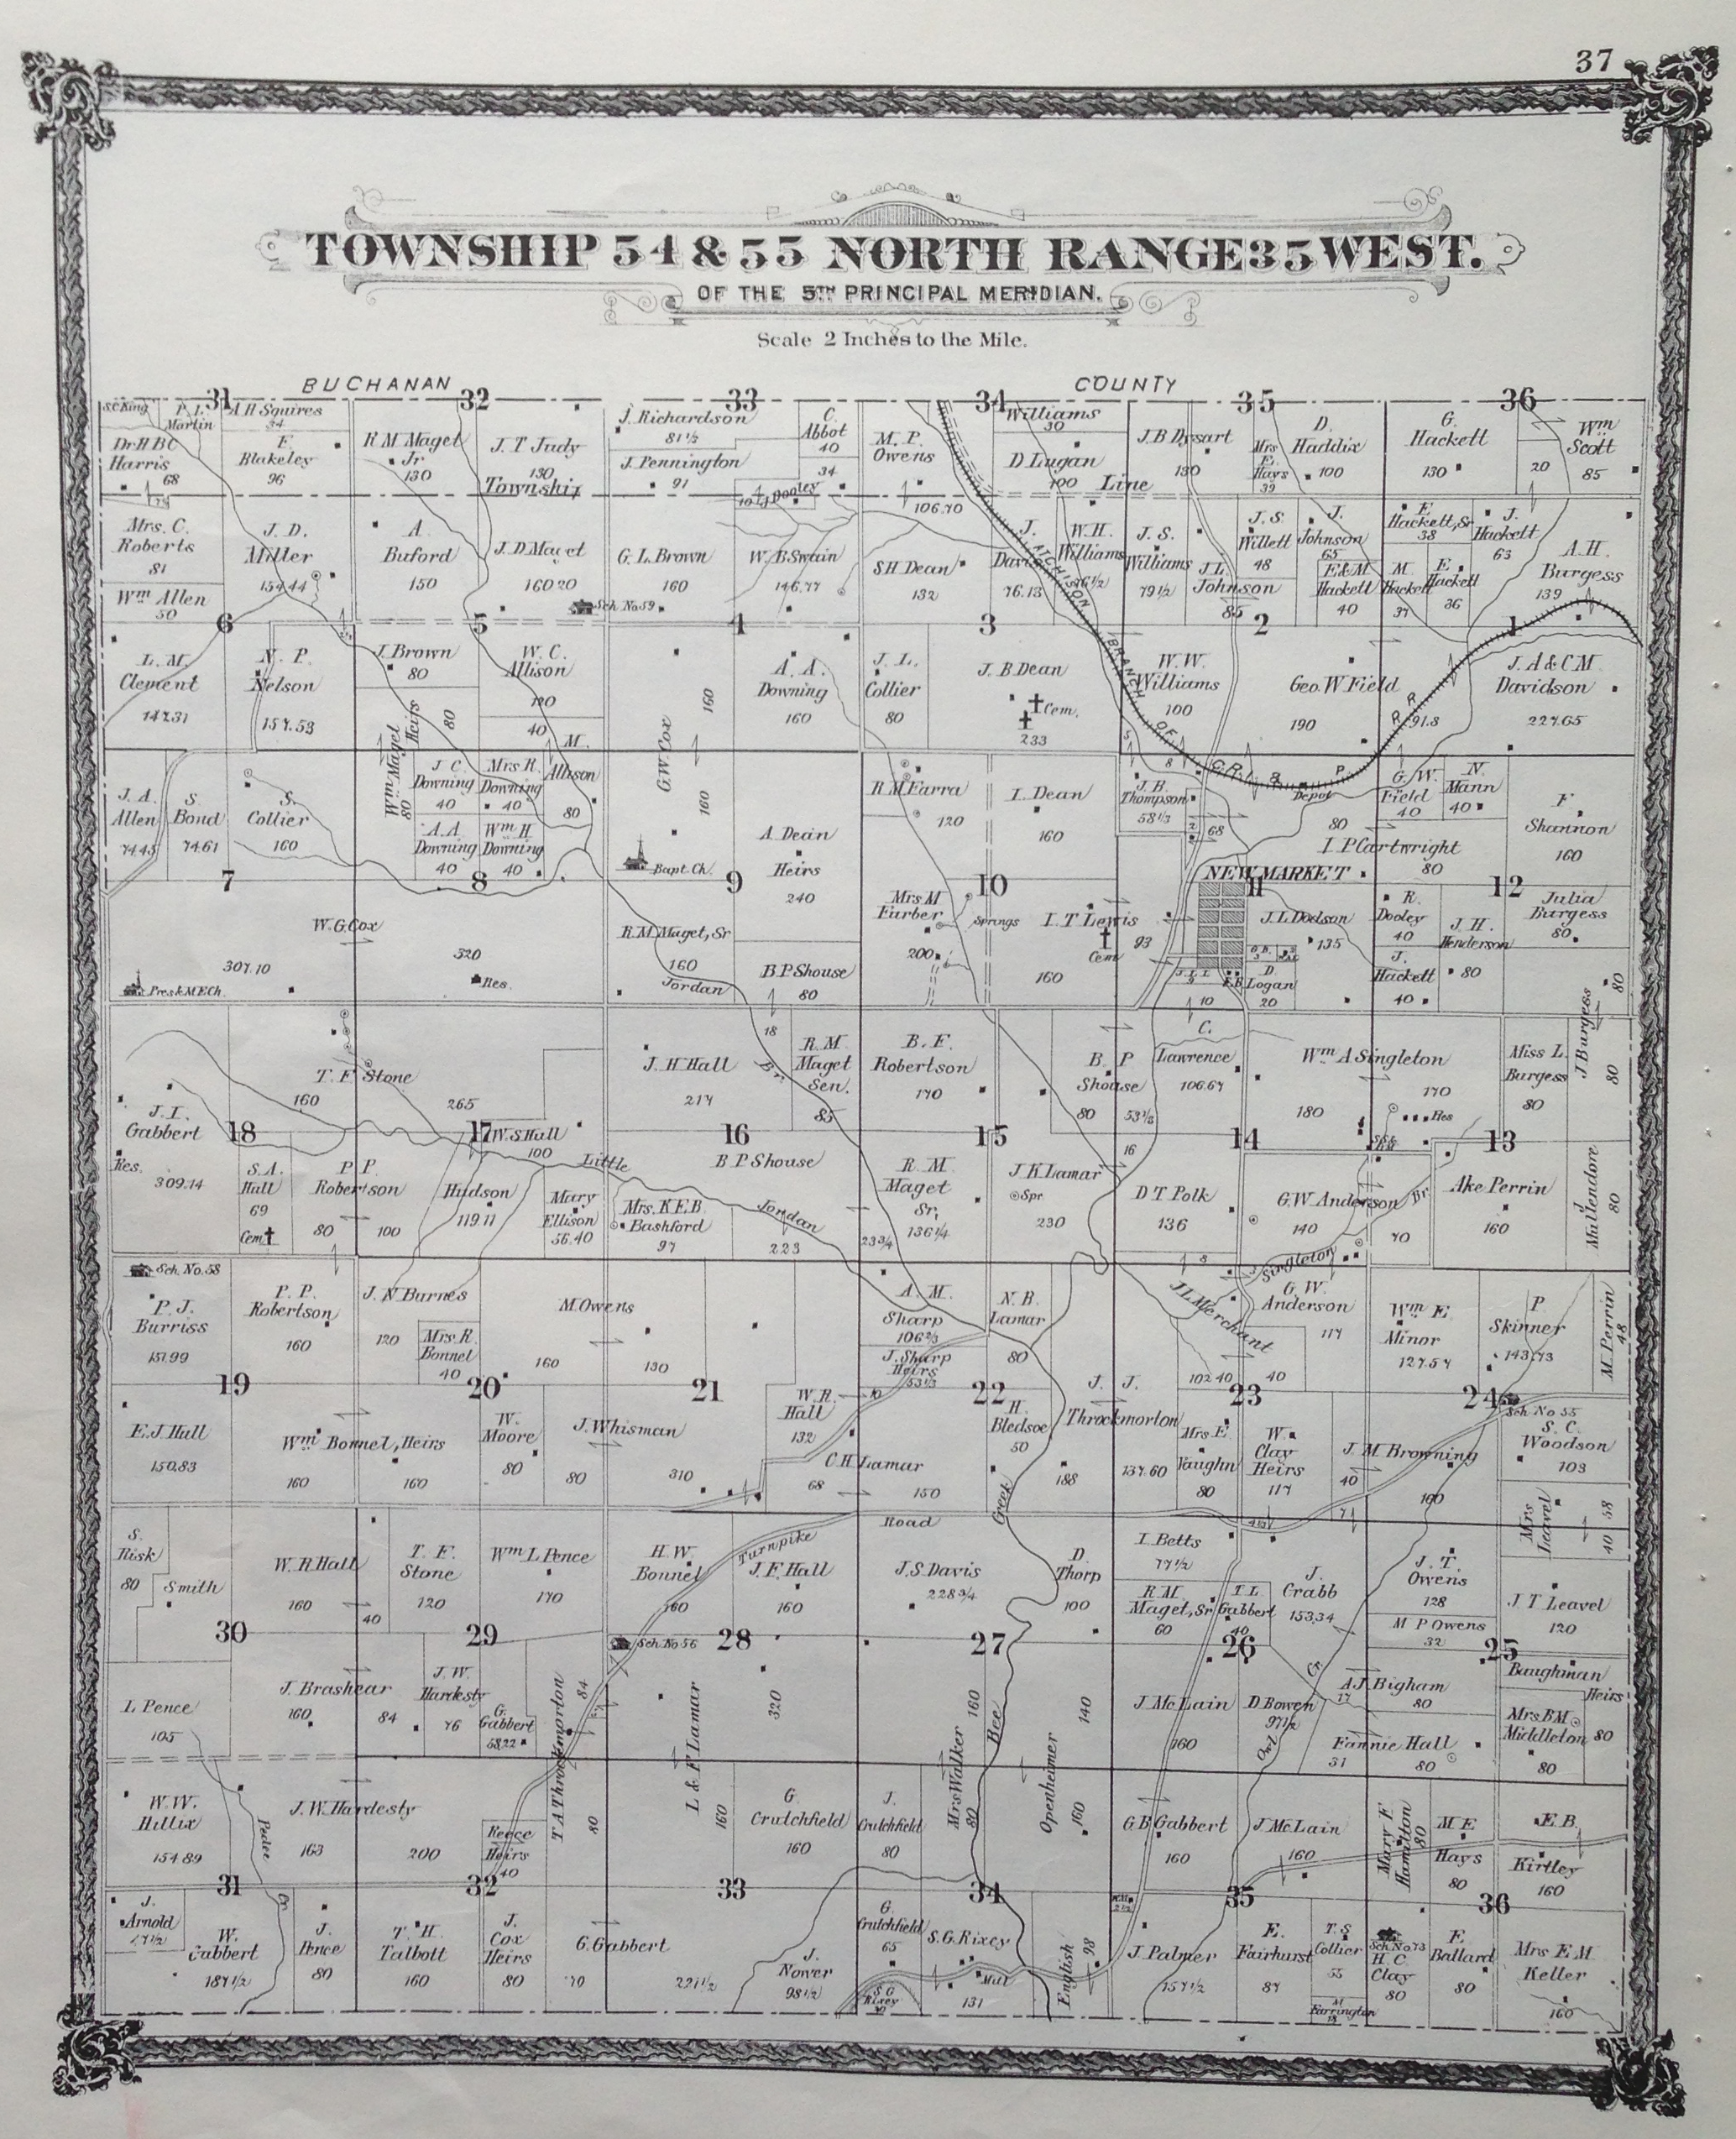 37
TOWNSHIP 54 & 55 NORTH RANGE 35 WEST.
OF THE 5TH PRINCIPAL MERIDIAN.
Scale 2 Inches to the Mile.
BUCHANAN COUNTY
31 32 33 34 35 36
S.C. King
P. I. Martin
A H Squires
34
Dr H B C Harris
68
E. Blakeley
96
R M Maget Jr
130
J. T Judy
130
J. Richardson
81 1/2
J. Pennington
91
C. Abbot
40
34
M. P. Owens
Williams
30
D. Lugan
100
J. B Dysart
130
Mrs E. Hays
39
D. Haddix
100
G. Hackett
130
20
Wm Scott
85
Township Line
Mrs. C. Roberts
81
Wm Allen
50
J. D. Miller
154.44
A Buford
150
J. D. Maget
160 20
G. L. Brown
160
Sch. No 59
J Dooley
10
W. B Swain
146.77
106.70
S H Dean
132
J. Davis
76.13
W. H. Williams
76 1/2
J. S. Williams
79 1/2
J. L Johnson
85
J. S. Willett
48
J. Johnson
65
E & M Hackett
40
E Hackett, Sr
38
M. Hackett
37
E. Hackett
36
J. Hackett
63
A. H. Burgess
139
ATCHISON BRANCH OF C. R. I. & P. R R
6 5 4 3 2 1
L. M. Clement
147.31
N. P. Nelson
157.53
J. Brown
80
Wm Maget Heirs
80
80
W. C. Allison
120
40
M. Allison
80
G. W Cox
160
160
A. A. Downing
160
J. L. Collier
80
J. B Dean
Cem.
233
W. W. Williams
100
Geo. W Field
190
91.8
J. A & C M Davidson
227.65
J. A. Allen
74.45
S. Bond
74.61
S. Collier
160
J C Downing
40
Mrs R. Downing
40
A. A. Downing
40
Wm H Downing
40
Bapt. Ch.
A. Dean Heirs
240
R. M Farra
120
I. Dean
160
J. B. Thompson
58 1/3
8
68
Depot
80
G. W. Field
40
N. Mann
40
I. P Cartwright
80
F Shannon
160
NEW MARKET
7 8 9 10 11 12
W. G. Cox
307.10
320
Res.
Pres & M E Ch.
R. M Maget, Sr
160
Jordan Br.
B. P Shouse
80
Mrs M Farber
200
Springs
I. T Lewis
160
Cem
93
J. L Dodson
135
D. Logan
20
10
R. Dooley
40
J. Hackett
40
J. H. Henderson
80
Julia Burgess
80
J Burgess
80
80
J. I. Gabbert
309.14
Res.
T. F Stone
160
265
W. S. Hall
100
J. H Hall
217
18
R. M Maget Sen.
85
B. F. Robertson
170
B. P Shouse
80
53 1/2
C. Lawrence
106.67
Wm A Singleton
180
170
Res
Miss L. Burgess
80
18 17 16 15 14 13
S. A. Hall
69
Cem
P P. Robertson
80
100
Hudson
119 11
Mary Ellison
56.40
Little Jordan
Mrs. K E B Bashford
97
B. P Shouse
223
R. M Maget Sr.
136 1/4
23 3/4
J. K Lamar
Spr.
230
16
D. T. Polk
136
8
G. W Anderson
140
70
Singleton Br
Ake Perrin
160
J Mullendore
80
Sch. No. 58
P. J. Burriss
151.99
P. P. Robertson
160
J. N Burnes
120
Mrs. R. Bonnel
40
M. Owens
160
130
A. M. Sharp
106 2/3
J. Sharp Heirs
53 1/3
N. B. Lamar
80
J. J. Throckmorton
188
137.60
J. L. Merchant
102 40
G. W Anderson
117
40
Wm E Minor
127.54
P Skinner
143.73
M. Perrin
48
19 20 21 22 23 24
E. J. Hull
150.83
Wm Bonnel, Heirs
160
160
W. Moore
80
J. Whisman
80
310
W. R. Hall
132
10
C. H Lamar
68
150
H. Bledsoe
50
Mrs. E. Vaughn
80
W. Clay Heirs
117
J. M Browning
40
160
Sch. No 55
S. C. Woodson
103
S. Risk
80
Smith
W. R Hall
160
40
T. F. Stone
120
Wm L Pence
170
H. W. Bonnel
160
Turnpike Road
J. F. Hall
160
J. S. Davis
228 3/4
D. Thorp
100
I. Betts
77 1/2
R M Maget, Sr
60
I. L Gabbert
40
J. Crabb
153.34
7
J. T. Owens
128
M P Owens
32
Mrs Leavel
40 58
J T Leavel
120
30 29 28 27 26 25
L Pence
105
J. Brashear
160
84
J. W. Hardesty
76
G. Gabbert
58.22
T A Throckmorton
84
80
Sch. No 56
L & F Lamar
320
160
Mrs Walker
160
80
Bee Creek
Openheimer
140
160
J. McLain
160
D. Bowen
97 1/2
Owl Cr
A J. Bigham
17
80
Fannie Hall
31
80
Baughman Heirs
80
Mrs B M Middleton
80
W. W. Hillix
154 89
Pedee Cr
J. W. Hardesty
163
200
Reece Heirs
40
G. Crutchfield
160
J. Crutchfield
80
G. B Gabbert
160
J. McLain
160
Mary F Hamilton
80
M E Hays
80
E. B. Kirtley
160
31 32 33 34 35 36
J. Arnold
W. Gabbert
187 1/2
J. Pence
80
T. H. Talbott
160
J. Cox Heirs
80
G. Gabbert
70
221 1/2
J. Nower
98 1/2
G. Crutchfield
65
S G Rixey
S. G. Rixey
131
Mill
English
98
2 1/2
J. Palmer
157 1/2
E. Fairhurst
87
T. S Collier
53
M Farrington
18
Sch. No 73
H. C. Clay
80
F. Ballard
80
Mrs E M Keller
160